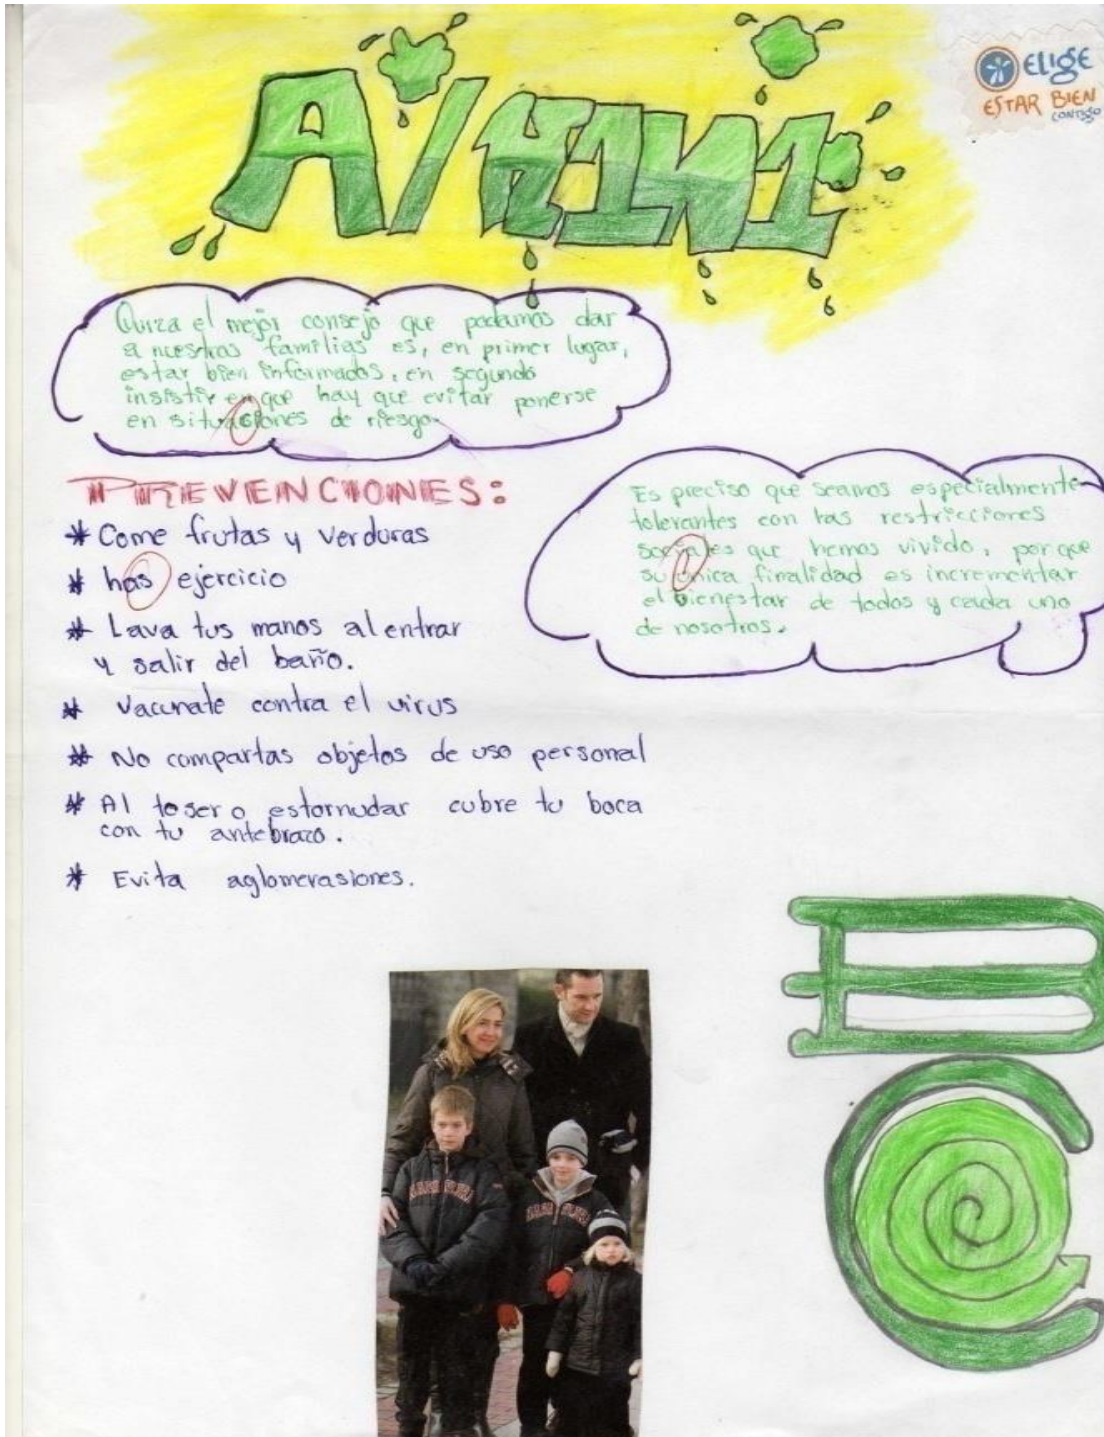 A/H1N1
ELIGE
ESTAR BIEN
CONTIGO
Quiza el mejor consejo que podamos dar
a nuestras familias es, en primer lugar,
estar bien informados, en segundo
insistir en que hay que evitar ponerse
en situaciones de riesgo.
PREVENCIONES:
* Come frutas y verduras
* has ejercicio
* Lava tus manos al entrar
y salir del baño.
* Vacunate contra el virus
* No compartas objetos de uso personal
* Al toser o estornudar cubre tu boca
con tu antebrazo.
* Evita aglomerasiones.
Es preciso que seamos especialmente
tolerantes con las restricciones
sociales que hemos vivido, por que
su unica finalidad es incrementar
el bienestar de todos y cada uno
de nosotros.